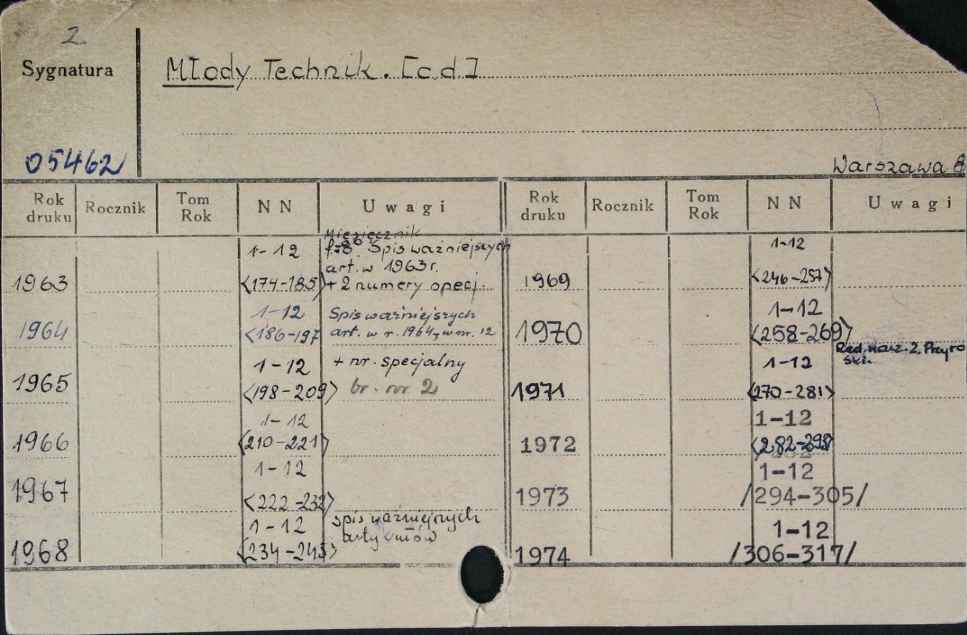 2.
Sygnatura
Młody Technik. [c.d.]
05462
Warszawa 8
Rok druku Rocznik Tom Rok NN Uwagi Rok druku Rocznik Tom Rok NN Uwagi
1963 1-12 <174-185> Miesięcznik
Spis ważniejszych
art. w 1963 r.
+ 2 numery specj.
1964 1-12 <186-197 Spis ważniejszych
art. w r. 1964, w nr. 12
1965 1-12 <198-209> + nr. specjalny
br. nr 2
1966 1-12 <210-221>
1967 1-12 <222-233>
1968 1-12 <234-245> spis ważniejszych
artykułów
1969 1-12 <246-257>
1970 1-12 <258-269>
1971 1-12 <270-281> Red. nacz. Z. Przyro
ski.
1972 1-12 <282-293
1973 1-12 /294-305/
1974 1-12 /306-317/